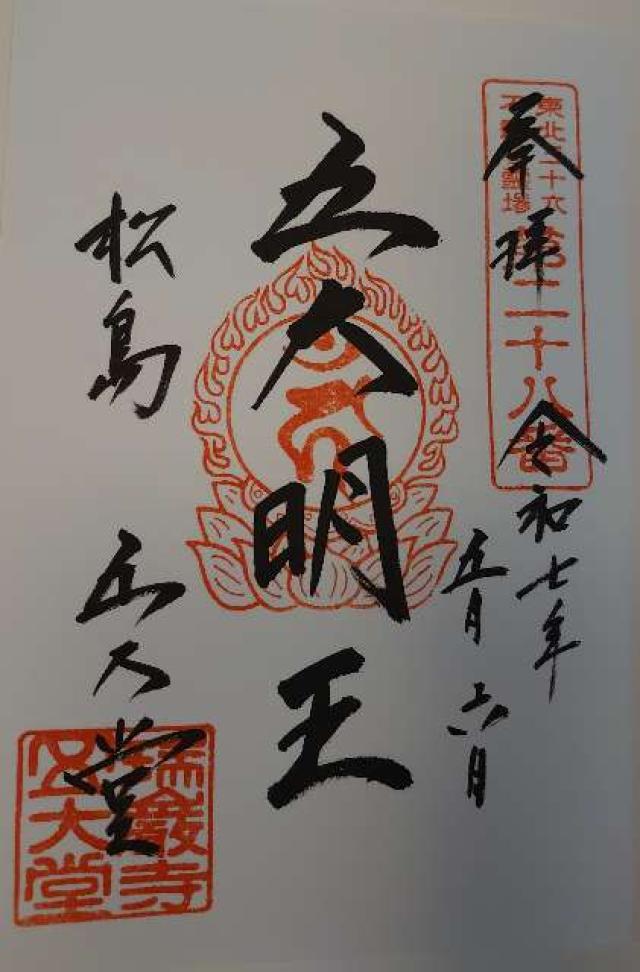 東北三十六
不動尊靈場
第二十八番
奉拝
令和七年
五月六日
五大明王
松島 五大堂
瑞巖寺
五大堂